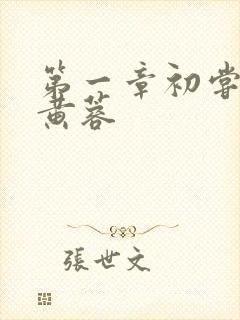 第一章初尝
黄蓉
張世文